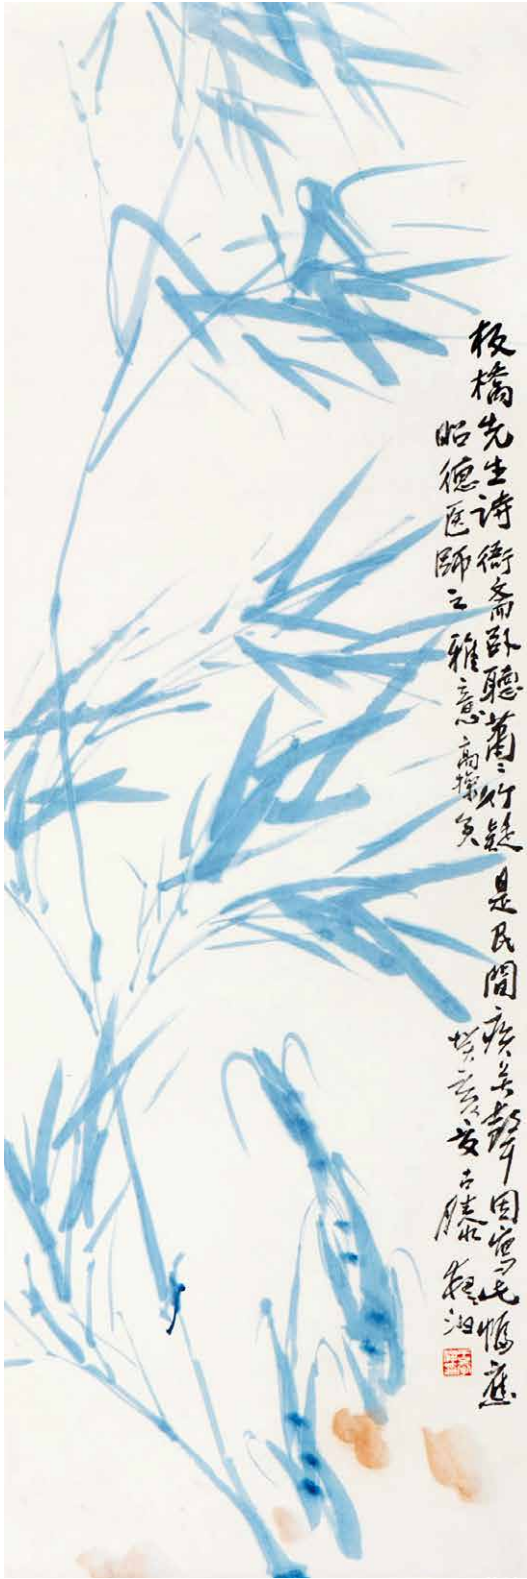 板橋先生詩衙斋卧聽蕭〻竹疑是民間疾苦聲因寫此幅應
昭德医師之雅意高操矣
癸亥夏古滕